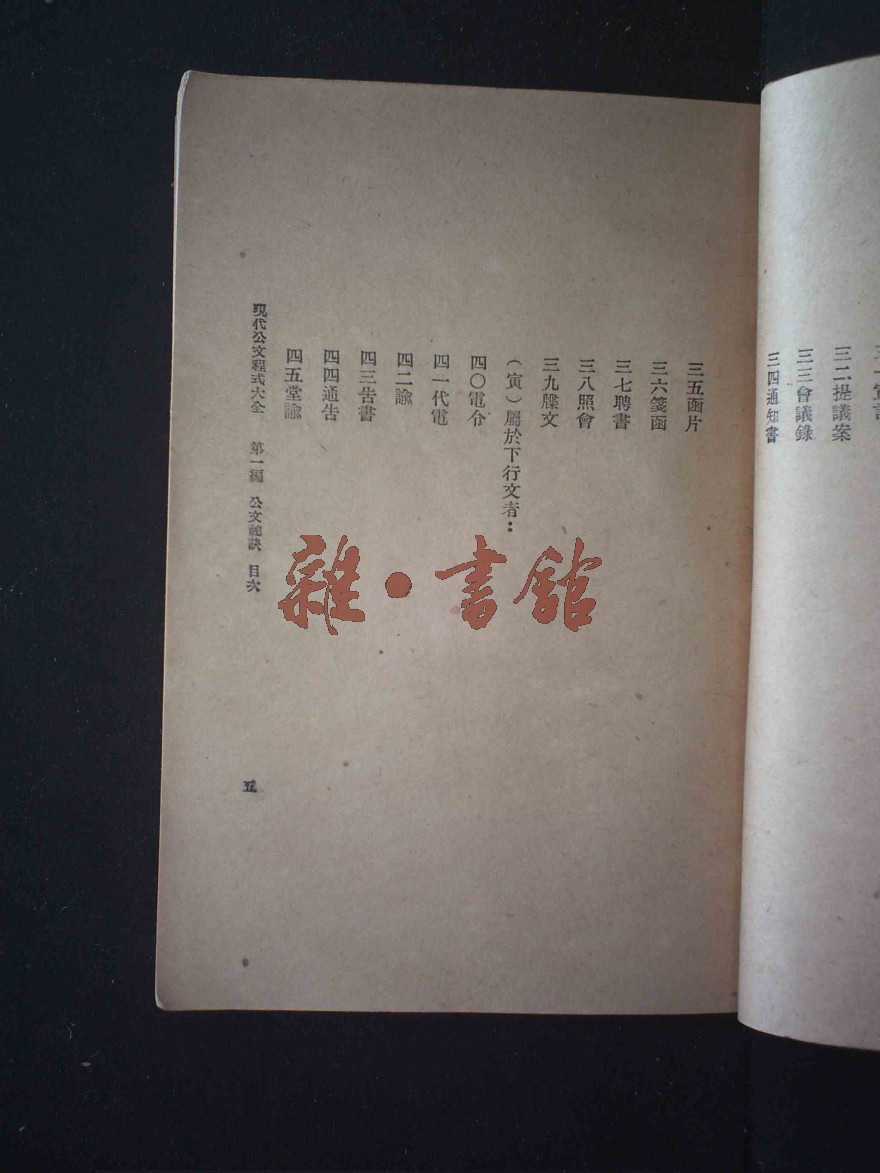 三二提議案
三三會議錄
三四通知書
三五函片
三六箋函
三七聘書
三八照會
三九牒文
（寅）屬於下行文者：
四〇電令
四一代電
四二諭
四三告書
四四通告
四五堂諭
現代公文程式大全　第一編　公文祕訣　目次
五
雜·書館